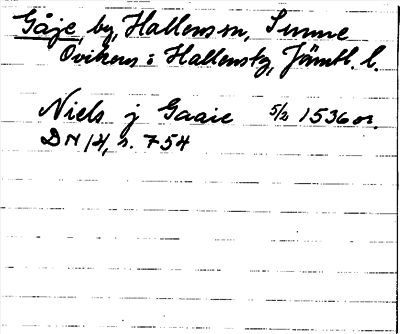 Gåje, by, Hallens sn, Sunne
Ovikens o Hallens tg, Jämtl. l.
Niels j Gaaie 5/2 1536 or.
DN 14, s. 754